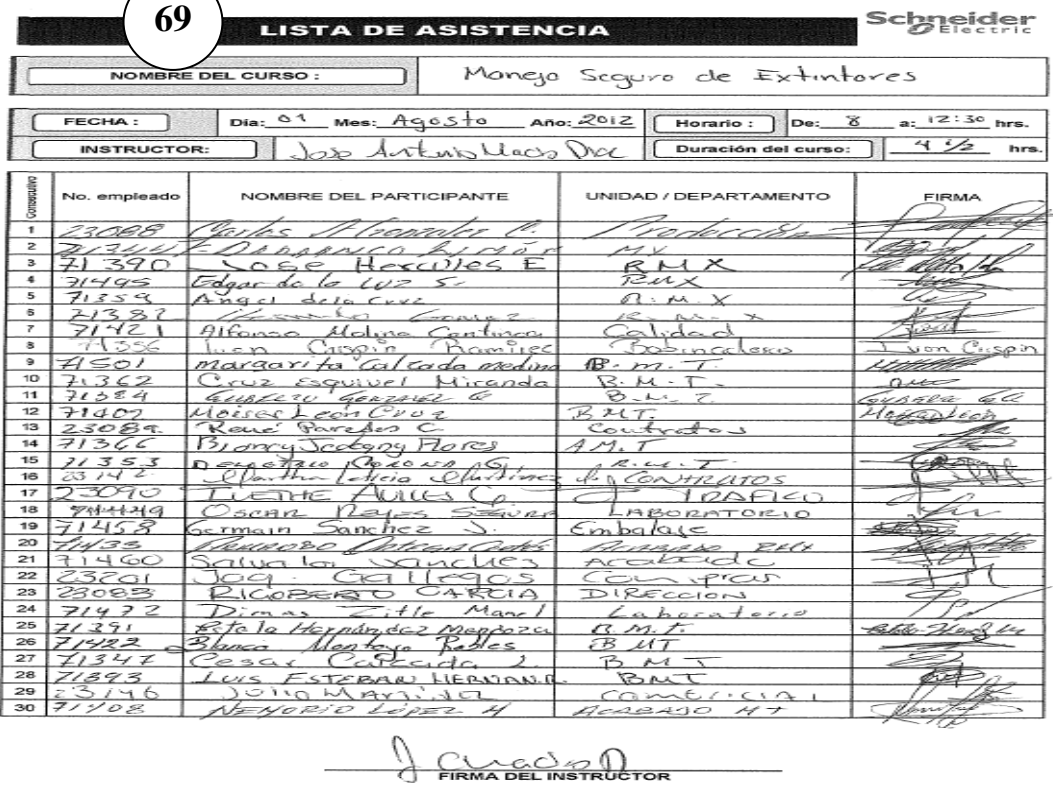 69
LISTA DE ASISTENCIA
Schneider Electric
NOMBRE DEL CURSO : Manejo Seguro de Extintores
FECHA : Día: 01 Mes: Agosto Año: 2012 Horario : De: 8 a: 12:30 hrs.
INSTRUCTOR: Jose Antonio Duración del curso: 4 1/2 hrs.
Consecutivo No. empleado NOMBRE DEL PARTICIPANTE UNIDAD / DEPARTAMENTO FIRMA
1 23088 Carlos A Gonzalez C. Producción
2
3 71390 Jose Hercules E RMX
4 71495 Edgar de la Luz S. RMX
5 71359 Angel dela Cruz R.M.X
6 71382 R.M.X
7 71421 Alfonso Molina Calidad
8 71356 Ivan Crispin Ramirez Ivan Crispin
9 71501 margarita Calzada medina B.M.T.
10 71362 Cruz Esquivel Miranda B.M.T.
11 71384 B.M.T.
12 71402 Moises León Cruz BMT.
13 23089 René Paredes C Contratos
14 71366 Flores A.M.T
15 71353 CORONA G.
16 23142 Martha Leticia Martinez CONTRATOS
17 23090 IVETHE AVILES G. TRAFICO
18 OSCAR REYES SEGURA LABORATORIO
19 71458 German Sanchez J. Embalaje
20 71433 RMX
21 71460 Salvador Sanchez Acabado
22 23201 Joq. Gallegos Compras
23 23083 RIGOBERTO GARCIA DIRECCION
24 71472 Dimas Zitle Manel Laboratorio
25 71391 Estela Hernández Mendoza B.M.T.
26 71422 Blanca Montoya Robles BMT
27 71347 Cesar Calzada L. BMT
28 71393 LUIS ESTEBAN HERNAN. BMT
29 23146 Julio MARTINEZ COMERCIAL
30 71408 NEMORIO LÓPEZ M ACABADO MT
FIRMA DEL INSTRUCTOR